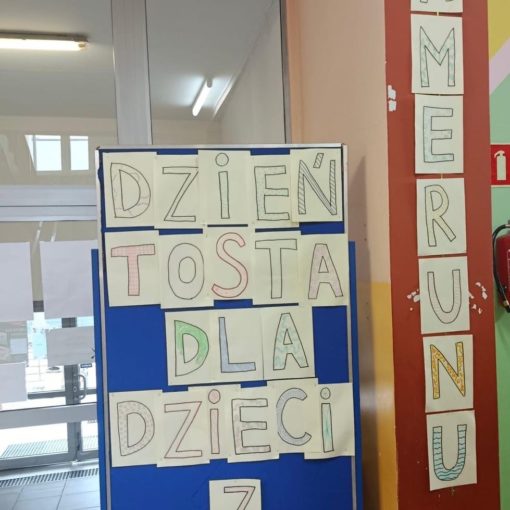 DZIEŃ
TOSTA
DLA
DZIECI
Z
MERUNU